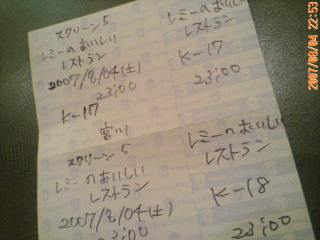 スクリーン5
レミーのおいしい
レストラン
2007/8/04(土)
23:00
K-17
宮川
レミーのおいしい
レストラン
K-17
23:00
スクリーン5
レミーのおいしい
レストラン
2007/8/04(土)
23:00
レミーのおいしい
レストラン
K-18
23:00
2007/08/04 22:53